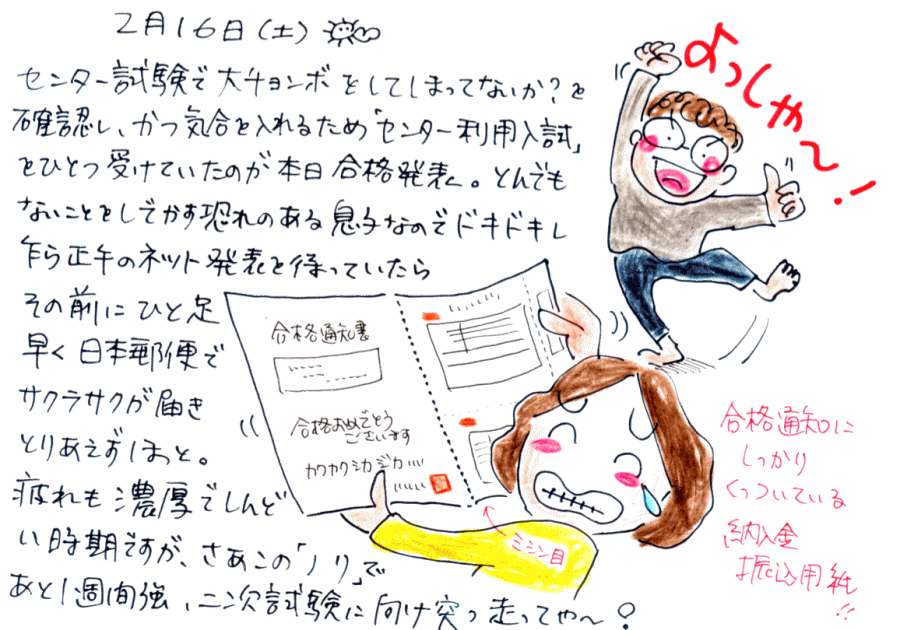 2月16日(土)
センター試験で大チョンボをしてしまってないか?を
確認し、かつ気合を入れるため「センター利用入試」
をひとつ受けていたのが本日合格発表。とんでも
ないことをしでかす恐れのある息子なのでドキドキし
乍ら正午のネット発表を待っていたら
その前にひと足
早く日本郵便で
サクラサクが届き
とりあえずほっと。
疲れも濃厚でしんど
い時期ですが、さあこの「ノリ」で
あと1週間強、二次試験に向け突っ走ってや〜?
よっしゃ〜!
合格通知書
合格おめでとう
ございます
カクカクシカジカ
ミシン目
合格通知に
しっかり
くっついている
納入金
振込用紙
!!